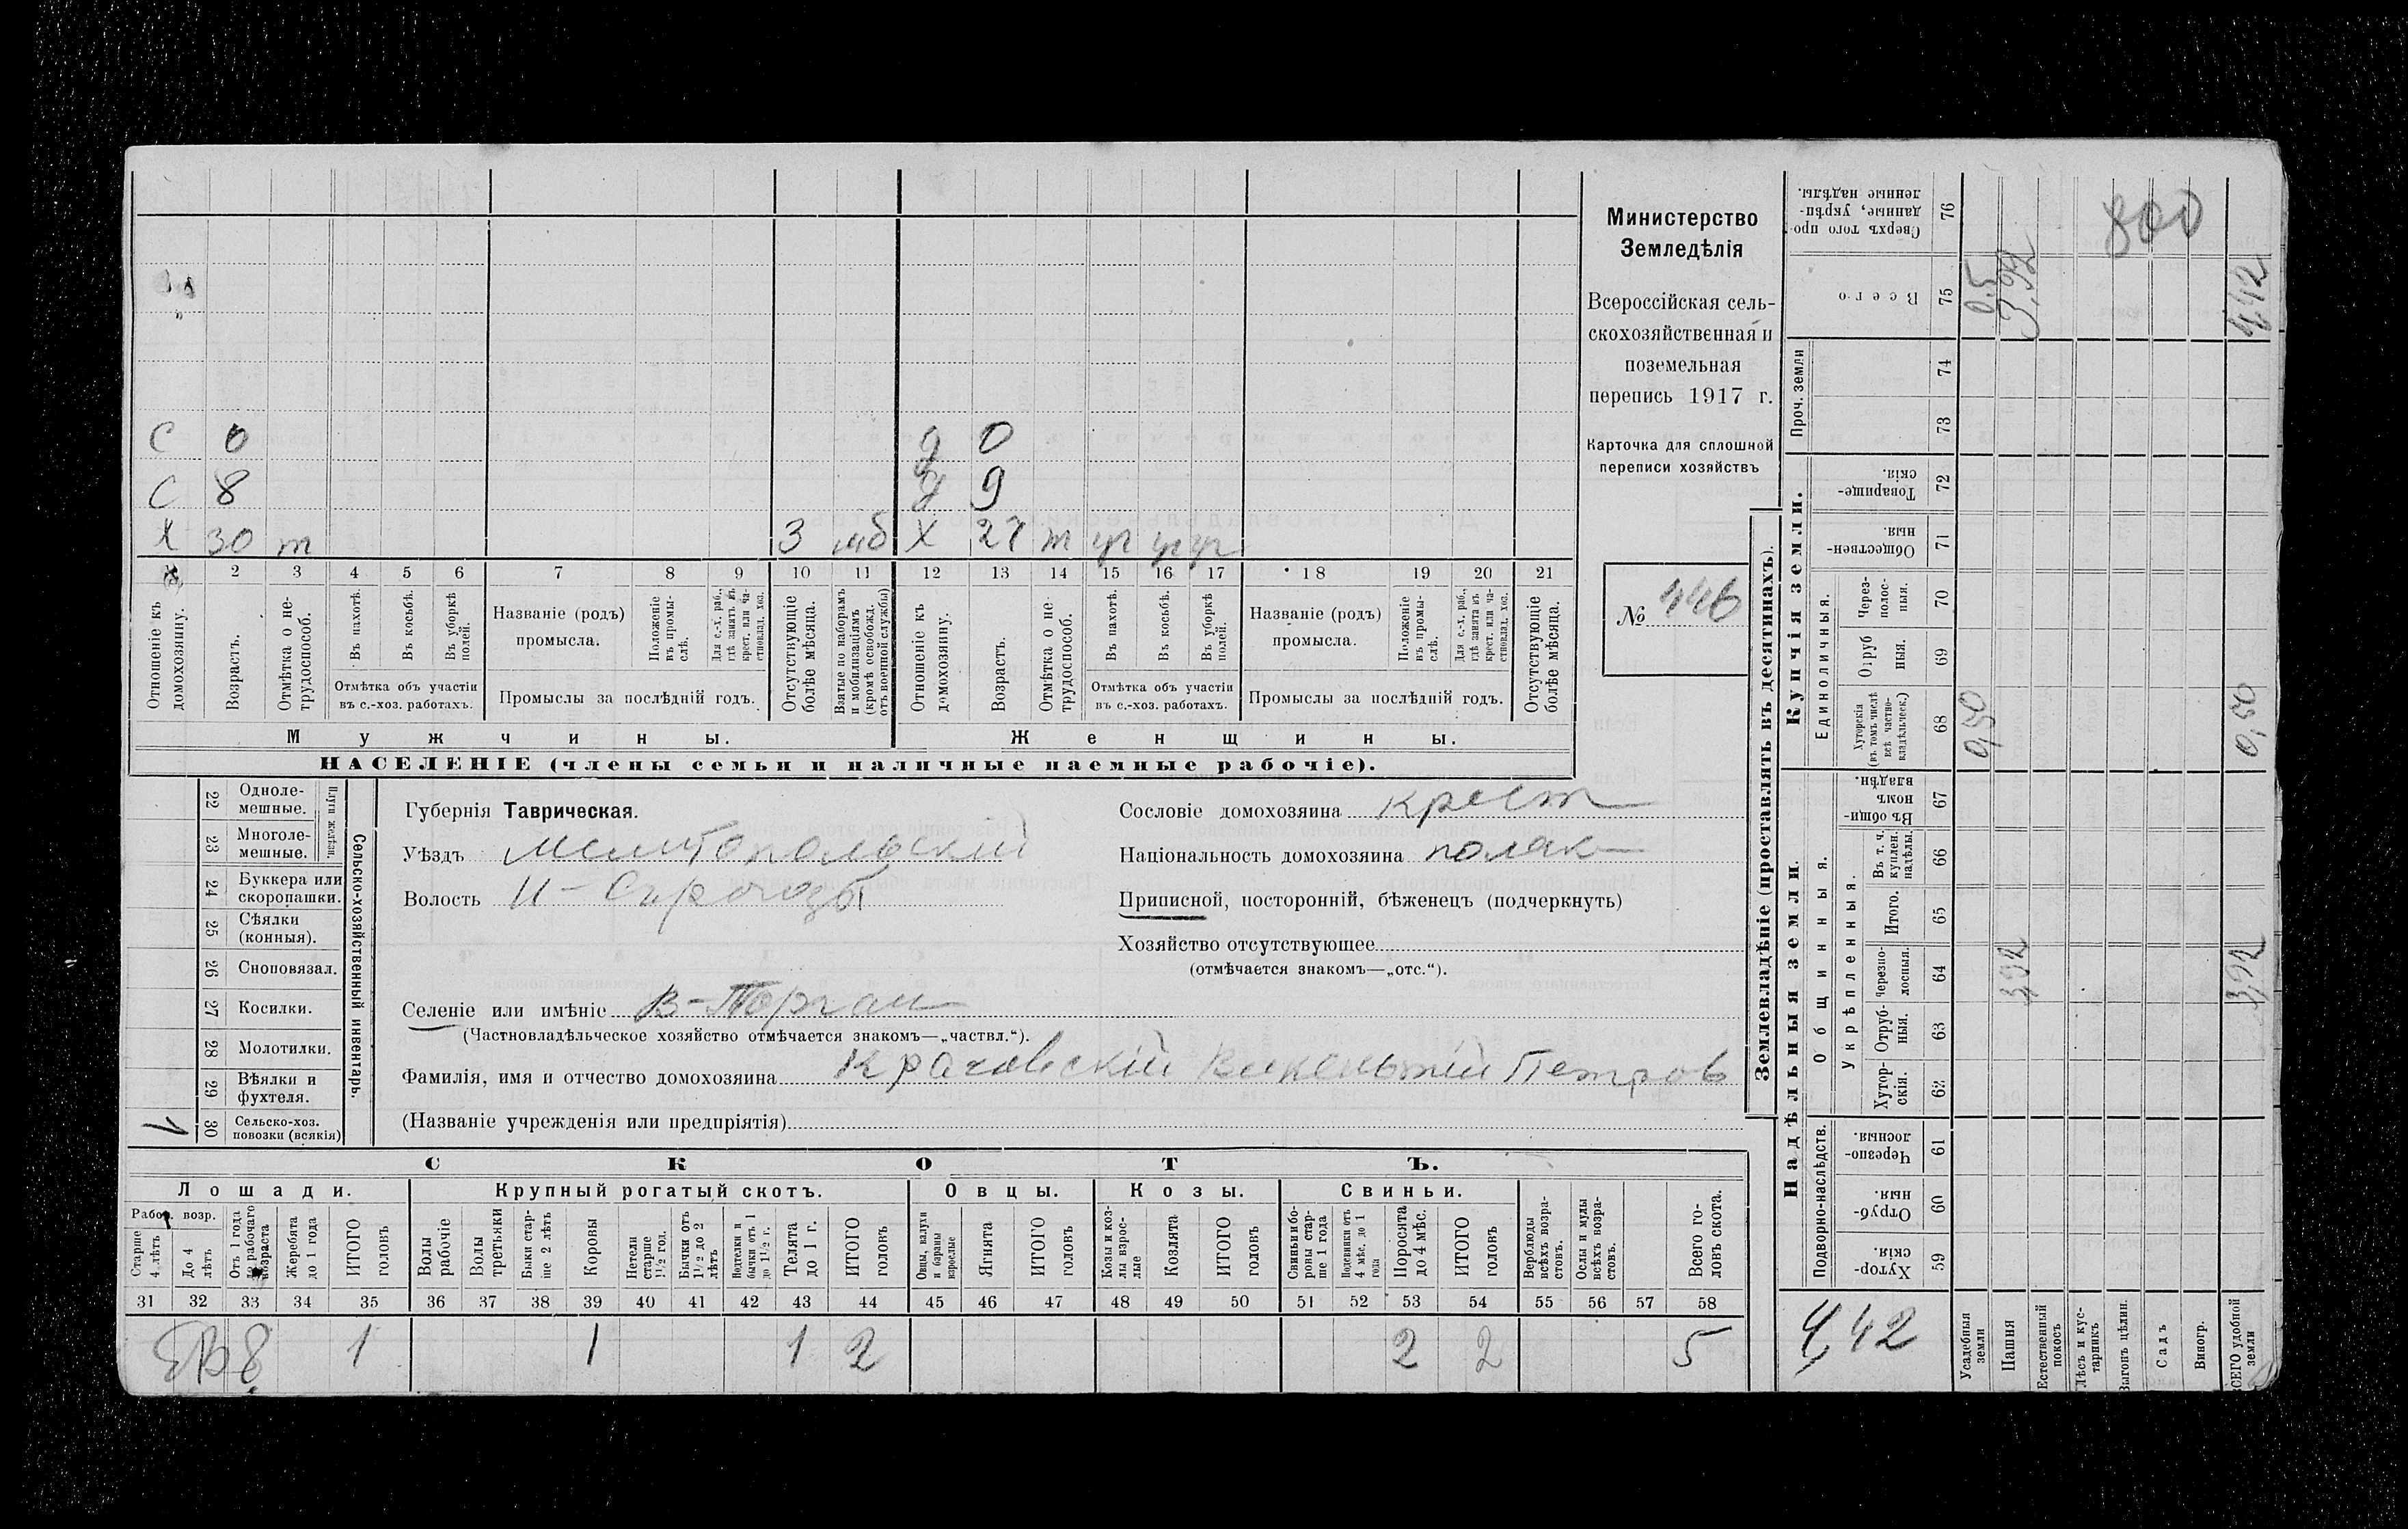 С 0 д 0
С 8 д 9
Х 30 т 3 моб Х 27 т уч уч уч
1 2 3 4 5 6 7 8 9 10 11 12 13 14 15 16 17 18 19 20 21
Отношеніе къ домохозяину.
Возрастъ.
Отмѣтка о не-трудоспособ.
Въ пахотѣ.
Въ косьбѣ.
Въ уборкѣ полей.
Отмѣтка объ участіи въ с.-хоз. работахъ.
Названіе (родъ) промысла.
Положеніе въ промы-слѣ.
Для с.-х. раб., гдѣ занятъ въ крест. или ча-стновлад. хоз.
Промыслы за послѣдній годъ.
Отсутствующіе болѣе мѣсяца.
Взятые по наборамъ и мобилизаціямъ (кромѣ освобожд. отъ военной службы)
Отношеніе къ домохозяину.
Возрастъ.
Отмѣтка о не-трудоспособ.
Въ пахотѣ.
Въ косьбѣ.
Въ уборкѣ полей.
Отмѣтка объ участіи въ с.-хоз. работахъ.
Названіе (родъ) промысла.
Положеніе въ промы-слѣ.
Для с.-х. раб., гдѣ занята въ крест. или ча-стновлад. хоз.
Промыслы за послѣдній годъ.
Отсутствующіе болѣе мѣсяца.
Мужчины. Женщины.
НАСЕЛЕНІЕ (члены семьи и наличные наемные рабочіе).
Министерство
Земледѣлія
Всероссійская сель-
скохозяйственная и
поземельная
перепись 1917 г.
Карточка для сплошной
переписи хозяйствъ
№ 446
22 Одноле-мешные.
23 Многоле-мешные.
Плуги желѣзн.
24 Буккера или скоропашки.
25 Сѣялки (конныя).
26 Сноповязал.
27 Косилки.
28 Молотилки.
29 Вѣялки и фухтеля.
30 Сельско-хоз. повозки (всякія)
Сельско-хозяйственный инвентарь.
Губернія Таврическая.
Уѣздъ Мелитопольскій
Волость Н-Сирогозы
Селеніе или имѣніе В-Торгаи
(Частновладѣльческое хозяйство отмѣчается знакомъ—„частвл.“).
Фамилія, имя и отчество домохозяина Крачевскій Викентій Петров
(Названіе учрежденія или предпріятія)
Сословіе домохозяина крест
Національность домохозяина поляк
Приписной, посторонній, бѣженецъ (подчеркнуть)
Хозяйство отсутствующее
(отмѣчается знакомъ—„отс.“).
СКОТЪ.
Лошади. Крупный рогатый скотъ. Овцы. Козы. Свиньи.
Рабоч. возр.
Старше 4 лѣтъ
До 4 лѣтъ
Отъ 1 года до рабочаго возраста
Жеребята до 1 года
ИТОГО головъ
Волы рабочіе
Волы третьяки
Быки стар-ше 2 лѣтъ
Коровы
Нетели старше 1½ год.
Бычки отъ 1½ до 2 лѣтъ
Подтелки и бычки отъ 1 до 1½ г.
Телята до 1 г.
ИТОГО головъ
Овцы, валухи и бараны взрослые
Ягнята
ИТОГО головъ
Козы и коз-лы взрос-лые
Козлята
ИТОГО головъ
Свиньи и бо-ровы стар-ше 1 года
Подсвинки отъ 4 мѣс. до 1 года
Поросята до 4 мѣс.
ИТОГО головъ
Верблюды всѣхъ возра-стовъ.
Ослы и мулы всѣхъ возра-стовъ.
Всего го-ловъ скота.
31 32 33 34 35 36 37 38 39 40 41 42 43 44 45 46 47 48 49 50 51 52 53 54 55 56 57 58
1 1 1 2 2 2 5
Землевладѣніе (проставлять въ десятинахъ).
Сверхъ того про-данные, укрѣп-ленные надѣлы. 76
800
Всего 75 0,5 3,92 4,42
Проч. земли 74 73
Купчія земли.
Товарище-скія. 72
Обществен-ныя. 71
Единоличныя.
Через-полос-ныя. 70
Отруб-ныя. 69
Хуторскія (въ томъ числѣ всѣ частно-владѣльческ.) 68 0,50 0,50
Надѣльныя земли.
Общинныя.
Въ общин-номъ владѣн. 67
Укрѣпленныя.
Въ т. ч. куплен. надѣлы. 66
Итого. 65
Черезпо-лосныя. 64 3,92 3,92
Отруб-ныя. 63
Хутор-скія. 62
Подворно-наслѣдств.
Черезпо-лосныя. 61
Отруб-ныя. 60
Хутор-скія. 59
4,42
Усадебныя земли
Пашня
Естественный покосъ
Лѣсъ и кус-тарникъ
Выгонъ цѣлин.
Садъ
Виногр.
ВСЕГО удобной земли